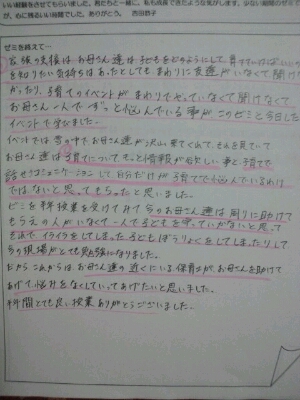 いい経験をさせてもらいました。君たちと一緒に、私も成長できたような気がします。少ない時間のゼミで
が、心に残るいい時間でした。ありがとう。 吉田恭子
ゼミを終えて…
家族の支援はお母さん達は子どもをどのようにして育てていけばいいの
を知りたい気持ちはあったとしてもまわりに友達がいなくて聞け
がったり、子育てのイベントがまわりでやっていなくて聞けなくて
お母さん一人でずっと悩んでいる事がこのゼミと今日した
イベントで学びました。
イベントでは雪の中でお母さん達が沢山来てくれて、それを見ていて
お母さん達は子育てについてもっと情報が欲しい事と子育て
話せるコミュニケーションして自分だけが子育てで悩んでいるわけ
ではないと思ってもらったと思いました。
ゼミを科授業を受けてみて今のお母さん達は周りに助けて
もらえの人がいなくて一人で子どもを守っていかないと思って
それでイライラをしてしまった子どもぼうりょくをしてしまったりして
今の現場がとても勉強になりました。
だからこれからはお母さん達の近くにいる保育士がお母さんを助けて
あげて悩みをなくしていってあげたいと思いました。
年間とても良い授業ありがとうございました。